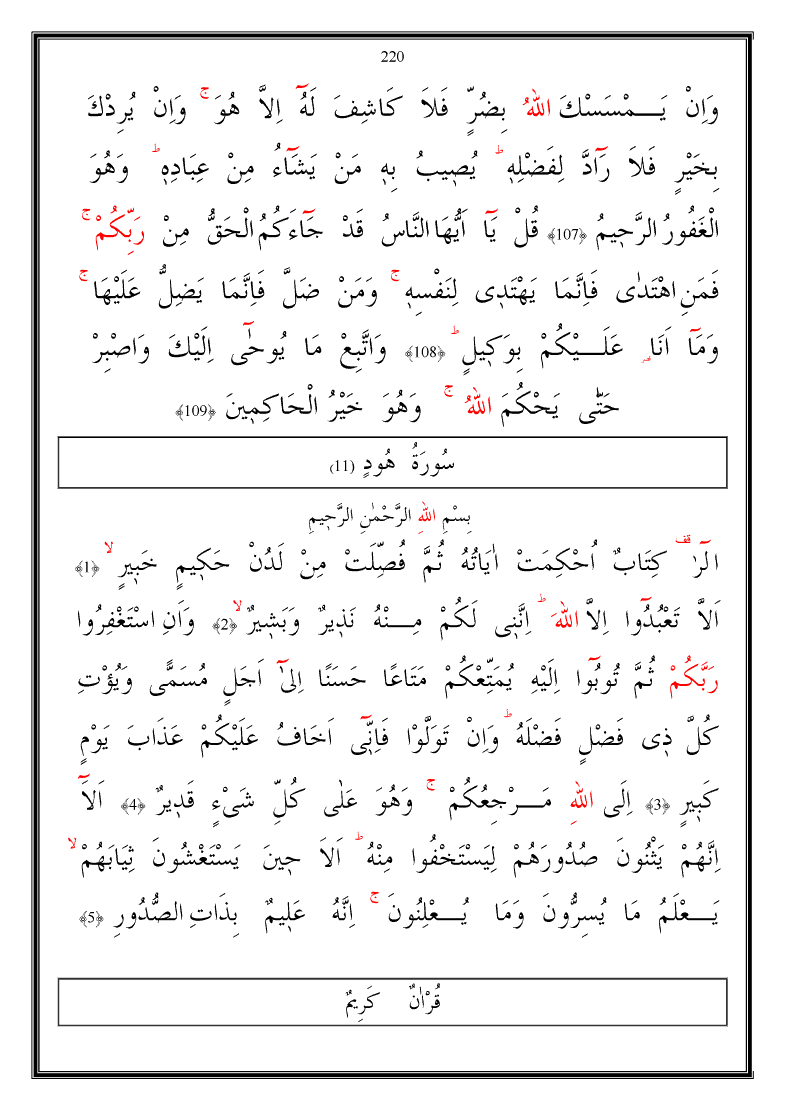 220
وَاِنْ يَمْسَسْكَ اللّٰهُ بِضُرٍّ فَلاَ كَاشِفَ لَهُٓ اِلاَّ هُوَ ۚ وَاِنْ يُرِدْكَ
بِخَيْرٍ فَلاَ رَٓادَّ لِفَضْلِه۪ ۜ يُص۪يبُ بِه۪ مَنْ يَشَٓاءُ مِنْ عِبَادِه۪ ۜ وَهُوَ
الْغَفُورُ الرَّح۪يمُ ﴿107﴾ قُلْ يَٓا اَيُّهَا النَّاسُ قَدْ جَٓاءَكُمُ الْحَقُّ مِنْ رَبِّكُمْ ۚ
فَمَنِ اهْتَدٰى فَاِنَّمَا يَهْتَد۪ى لِنَفْسِه۪ ۚ وَمَنْ ضَلَّ فَاِنَّمَا يَضِلُّ عَلَيْهَا ۚ
وَمَٓا اَنَا۬ عَلَيْكُمْ بِوَك۪يلٍ ۜ ﴿108﴾ وَاتَّبِعْ مَا يُوحٰٓى اِلَيْكَ وَاصْبِرْ
حَتّٰى يَحْكُمَ اللّٰهُ ۚ وَهُوَ خَيْرُ الْحَاكِم۪ينَ ﴿109﴾
سُورَةُ هُودٍ (11)
بِسْمِ اللّٰهِ الرَّحْمٰنِ الرَّح۪يمِ
الٓرٰ ࣞ كِتَابٌ اُحْكِمَتْ اٰيَاتُهُ ثُمَّ فُصِّلَتْ مِنْ لَدُنْ حَك۪يمٍ خَب۪يرٍ ۙ ﴿1﴾
اَلاَّ تَعْبُدُٓوا اِلاَّ اللّٰهَ ۜ اِنَّن۪ى لَكُمْ مِنْهُ نَذ۪يرٌ وَبَش۪يرٌ ۙ ﴿2﴾ وَاَنِ اسْتَغْفِرُوا
رَبَّكُمْ ثُمَّ تُوبُٓوا اِلَيْهِ يُمَتِّعْكُمْ مَتَاعًا حَسَنًا اِلٰٓى اَجَلٍ مُسَمًّى وَيُؤْتِ
كُلَّ ذ۪ى فَضْلٍ فَضْلَهُ ۜ وَاِنْ تَوَلَّوْا فَاِنّ۪ٓى اَخَافُ عَلَيْكُمْ عَذَابَ يَوْمٍ
كَب۪يرٍ ﴿3﴾ اِلَى اللّٰهِ مَرْجِعُكُمْ ۚ وَهُوَ عَلٰى كُلِّ شَىْءٍ قَد۪يرٌ ﴿4﴾ اَلَٓا
اِنَّهُمْ يَثْنُونَ صُدُورَهُمْ لِيَسْتَخْفُوا مِنْهُ ۜ اَلاَ ح۪ينَ يَسْتَغْشُونَ ثِيَابَهُمْ ۙ
يَعْلَمُ مَا يُسِرُّونَ وَمَا يُعْلِنُونَ ۚ اِنَّهُ عَل۪يمٌ بِذَاتِ الصُّدُورِ ﴿5﴾
قُرْاٰنٌ كَر۪يمٌ